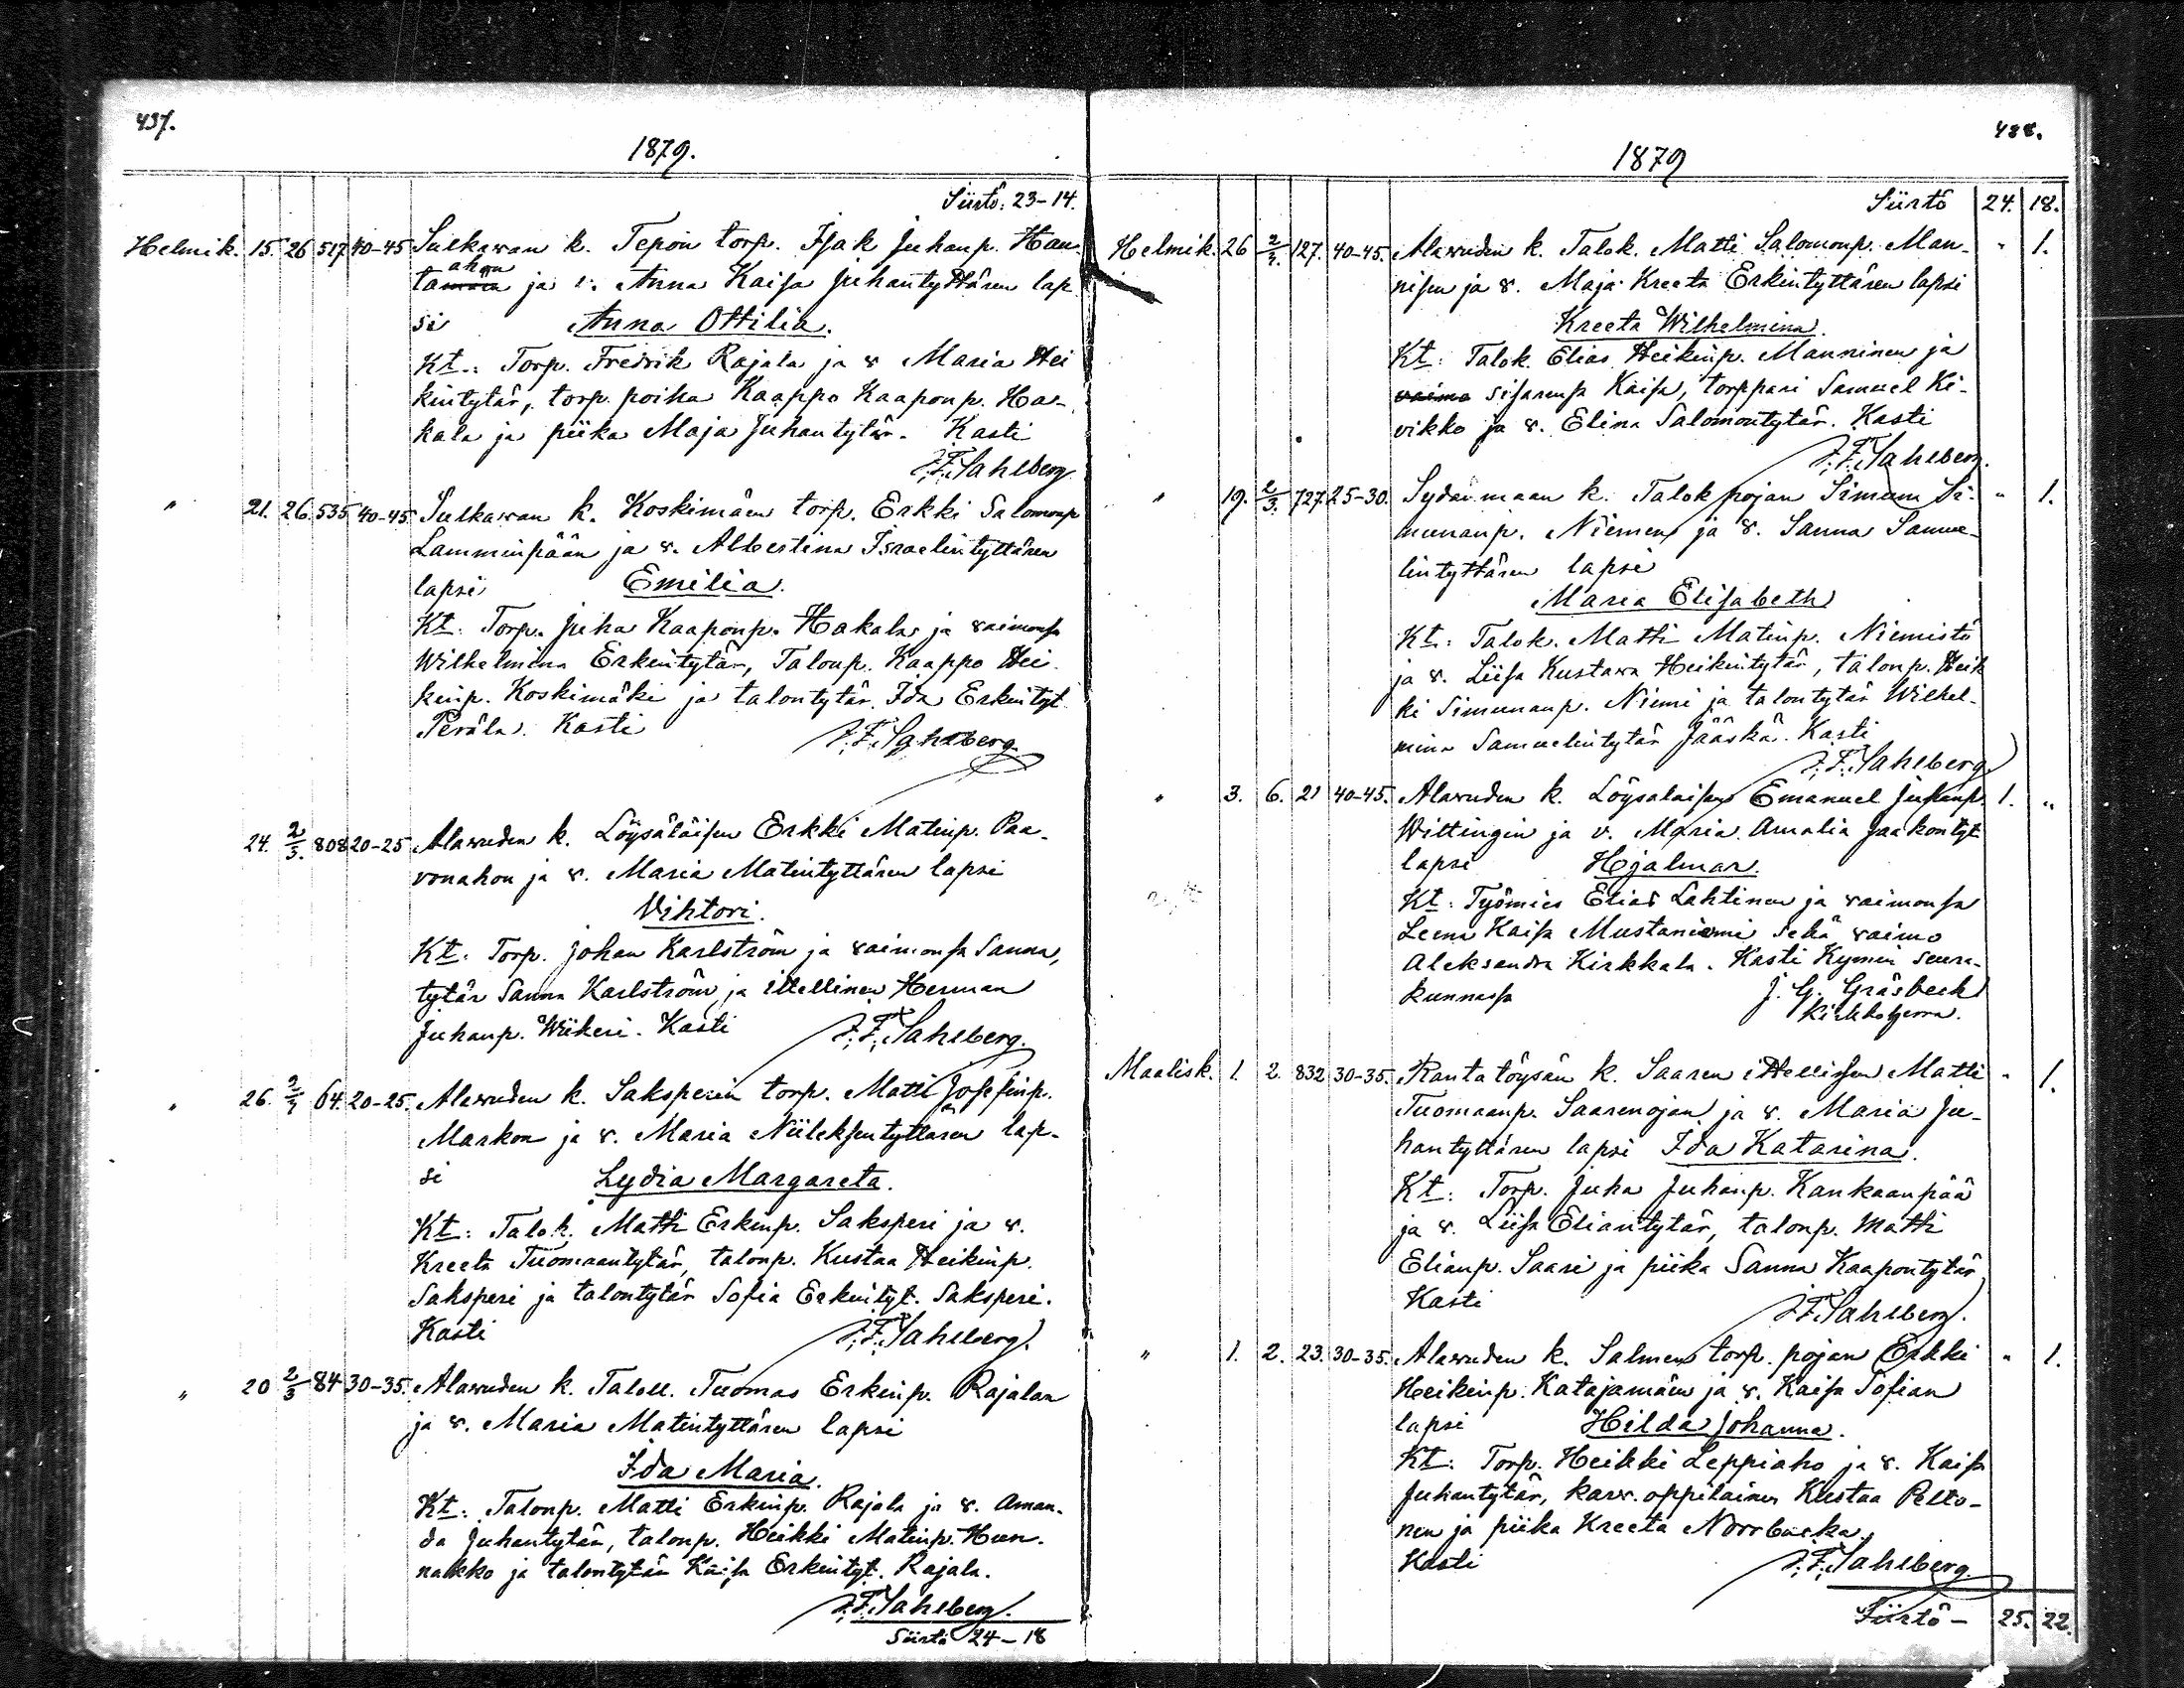 437.
1879.
Siirtö: 23-14.
Helmik. 15. 26 517 40-45 Sulkawan k. Tepon torp. Isak Juhanp. Han-
ahon
tamäen ja v. Anna Kaisa Juhantyttären lap
si Anna Ottilia.
Kt.: Torp. Fredrik Rajala ja v Maria Hei
kintytär, torp. poika Kaappo Kaaponp. Ha-
kala ja piika Maja Juhantytär. Kasti
J.F. Sahlberg
" 21. 26. 535 40-45 Sulkawan k. Koskimäen torp. Erkki Salomonp
Lamminpään ja v. Albertina Israelintyttären
lapsi Emilia.
Kt: Torp. Juha Kaaponp. Hakala ja vaimonsa
Wilhelmina Erkintytär, Talonp. Kaappo Hei-
kinp. Koskimäki ja talontytär Ida Erkintyt.
Perälä. Kasti J.F. Sahlberg.
24. 2/3. 808 20-25 Alawuden k. Löysäläisen Erkki Matinp. Paa-
vonahon ja v. Maria Matintyttären lapsi
Vihtori.
Kt: Torp. Johan Karlström ja vaimonsa Sanna,
tytär Sanna Karlström ja itellinen Herman
Juhanp. Wiikeri. Kasti J.F. Sahlberg.
" 26. 2/3 64. 20-25. Alawuden k. Saksperin torp. Matti Josefinp.
Markon ja v. Maria Niileksentyttären lap-
si Lydia Margareta.
Kt: Talok. Matti Erkinp. Saksperi ja v.
Kreeta Tuomaantytär, talonp. Kustaa Heikinp.
Saksperi ja talontytär Sofia Erkintyt. Saksperi.
Kasti J.F. Sahlberg.
" 20 2/3 84 30-35. Alawuden k. Taloll. Tuomas Erkinp. Rajalan
ja v. Maria Matintyttären lapsi
Ida Maria.
Kt: Talonp. Matti Erkinp. Rajala ja v. Aman-
da Juhantytär, talonp. Heikki Matinp. Hun-
nakko ja talontytär Kaisa Erkintyt. Rajala.
J.F. Sahlberg.
Siirtö 24-18
438.
1879
Siirtö 24. 18.
Helmik. 26 2/3. 127. 40-45. Alawuden k. Talok. Matti Salomonp. Man- " 1.
nisen ja v. Maja Kreeta Erkintyttären lapsi
Kreeta Wilhelmina.
Kt: Talok. Elias Heikinp. Manninen ja
vaimo sisarensa Kaisa, torppari Samuel Ki-
vikko ja v. Elina Salomontytär. Kasti
J.F. Sahlberg.
" 19. 2/3. 727. 25-30. Sydänmaan k. Talok pojan Simuna Si- " 1.
munanp. Niemen ja v. Sanna Samue-
lintyttären lapsi
Maria Elisabeth
Kt: Talok. Matti Matinp. Niemistö
ja v. Liisa Kustawa Heikintytär, talonp. Heik
ki Simunanp. Niemi ja talontytär Wilhel-
mina Samuelintytär Jääskä. Kasti
J.F. Sahlberg.
" 3. 6. 21 40-45. Alawuden k. Löysäläisen Emanuel Juhanp. 1. "
Wittingin ja v. Maria Amalia Jaakontyt
lapsi Hjalmar.
Kt: Työmies Elias Lahtinen ja vaimonsa
Leena Kaisa Mustaniemi sekä vaimo
Aleksandra Kirkkala. Kasti Kymin seura-
kunnassa J. G. Gräsbeck
kirkkoherra.
Maalisk. 1. 2. 832 30-35. Rantatöysän k. Saaren itellisen Matti " 1.
Tuomaanp. Saarenojan ja v. Maria Ju-
hantyttären lapsi Ida Katarina.
Kt: Torp. Juha Juhanp. Kankaanpää
ja v. Liisa Eliantytär, talonp. Matti
Elianp. Saari ja piika Sanna Kaapontytär
Kasti J.F. Sahlberg.
" 1. 2. 23. 30-35. Alawuden k. Salmen torp. pojan Erkki " 1.
Heikinp. Katajamäen ja v. Kaisa Sofian
lapsi Hilda Johanna.
Kt: Torp. Heikki Leppiaho ja v. Kaisa
Juhantytär, karv. oppilainen Kustaa Pelto-
nen ja piika Kreeta Norrbacka.
Kasti J.F. Sahlberg.
Siirtö - 25. 22.